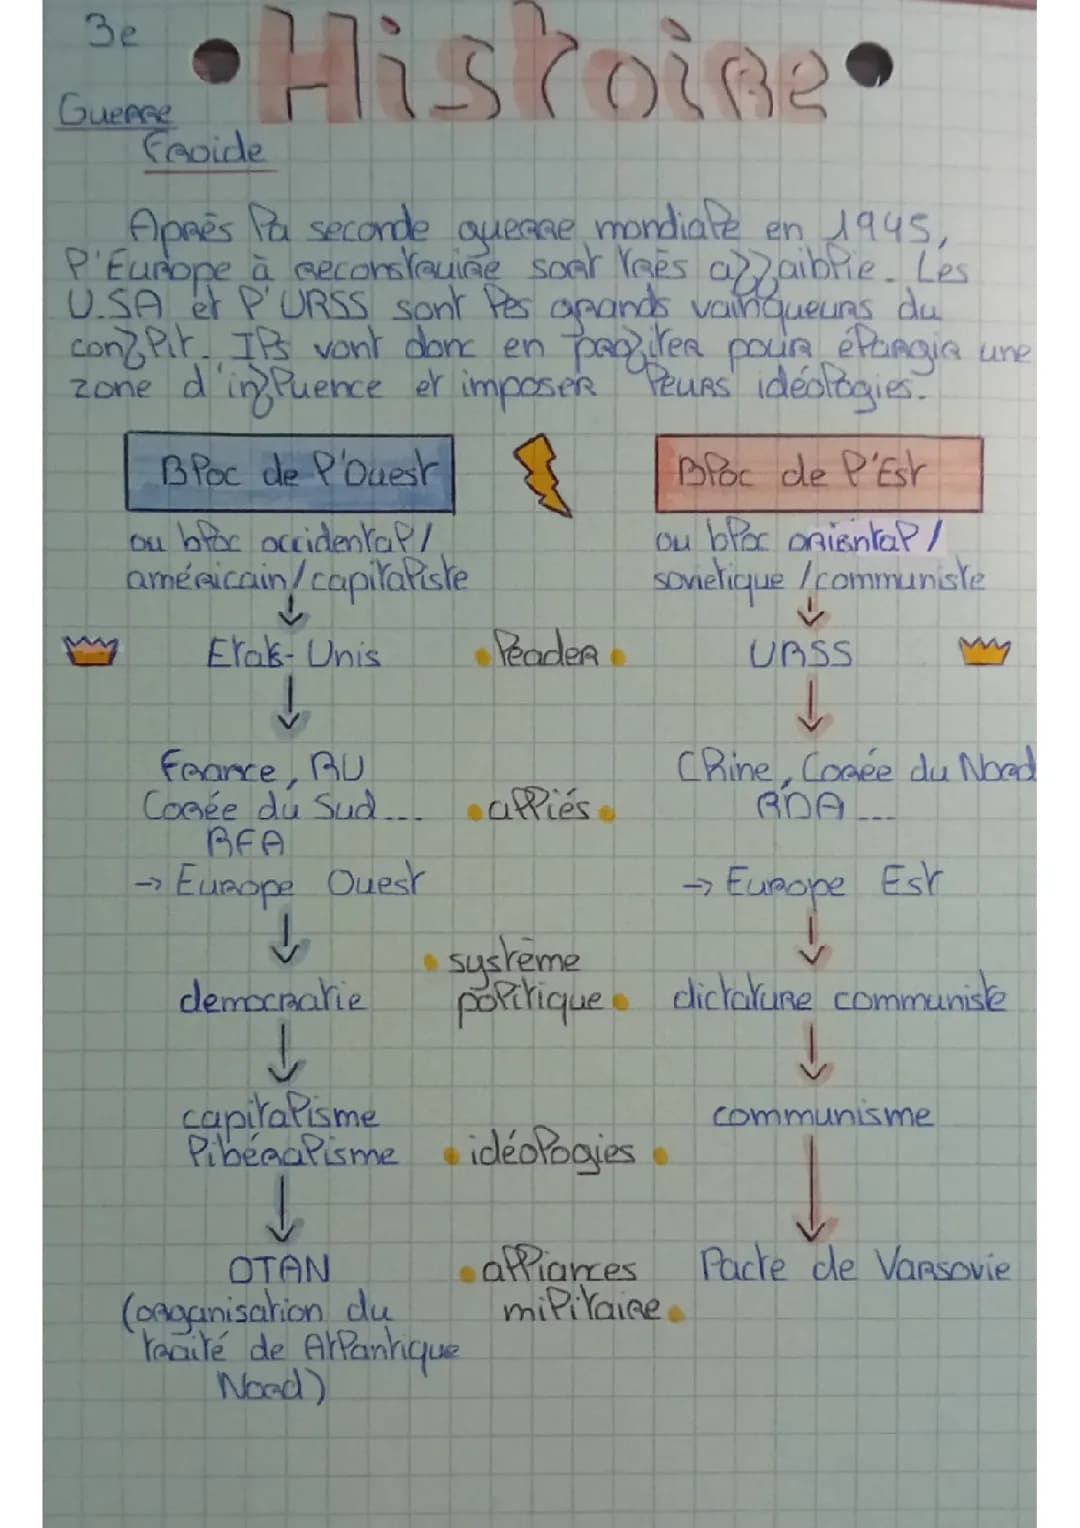 3e
• Histoire •
Guerre
Froide
Après la seconde guerre mondiale en 1945,
l'Europe à reconstruire sort très affaiblie. Les
U.SA et l'URSS sont les grands vainqueurs du
conflit. Ils vont donc en profiter pour élargir une
zone d'influence et imposer leurs idéologies.
Bloc de l'Ouest Bloc de l'Est
ou bloc occidental/ ou bloc oriental/
américain/capitaliste sovietique/communiste
Etats-Unis • leader • URSS
France, RU Chine, Corée du Nord
Corée du Sud... • alliés • RDA...
RFA
→ Europe Ouest → Europe Est
• système
democratie politique • dictature communiste
capitalisme communisme
libéralisme • idéologies •
OTAN • alliances Pacte de Varsovie
(organisation du militaire •
traité de Atlantique
Nord)